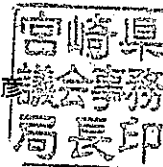 宮崎県
彦議会事務
局長印